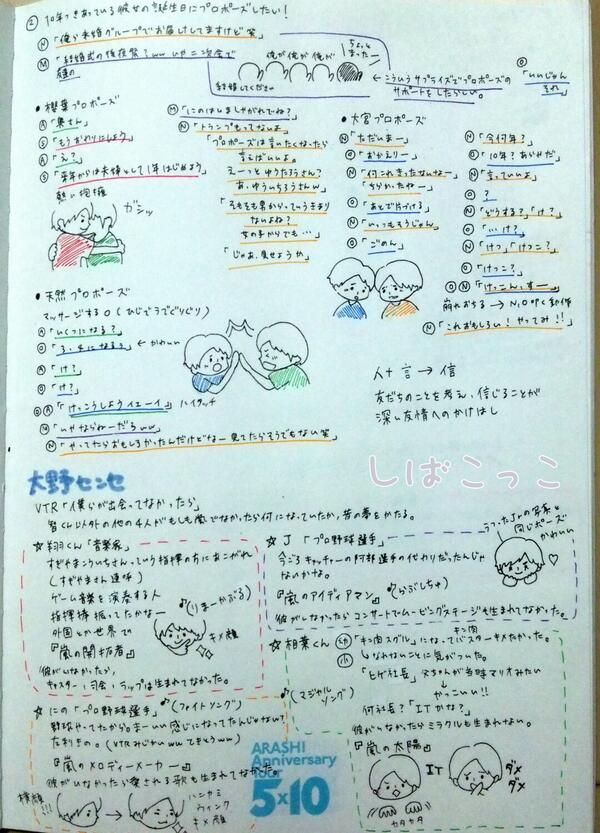 ② 10年つきあっている彼女の誕生日にプロポーズしたい!
Ⓝ「俺ら未婚グループでお届けしてますけど笑」
Ⓜ「結婚式の後夜祭?ww いや二次会で
結婚してください
俺が 俺が 俺が
ちょっとまった
←こういうサプライズでプロポーズの
サポートをしたらしい。
Ⓞ「いいじゃん
それ」
●櫻葉プロポーズ
Ⓐ「奥さん」
Ⓢ「もうおわりにしよう」
Ⓐ「え?」
Ⓢ「来年からは夫婦として1年はじめよう」
熱い抱擁
ガシッ
Ⓜ「にのはしまじゃがれでね?」
Ⓝ「トランプもってないよ
「プロポーズは言いたくなったら
言えばいいよ。
えーっと ゆうたろうさん?
あ、ゆういちろうさんw
そもそも男からっていうきまり
ないよね?
女の子からでも…」
「じゃあ、見せようか」
●大宮プロポーズ
Ⓝ「ただいまー」
Ⓞ「おかえりー」
Ⓝ「何これきったないなー
ちらかったねー」
Ⓞ「あとで片づける」
Ⓝ「いっつもそうじゃん」
Ⓞ「ごめん」
Ⓝ「今何年?」
Ⓞ「10年?あらやだ」
Ⓝ「言っていいよ」
Ⓞ ?
Ⓝ「どうする?」「け?」
Ⓞ「…け?」
Ⓝ「けっ」「けっこ?」
Ⓞ「けっこ?」
ⓄⓃ「けっこん、すー」
崩れおちる → N,O叩く動作
Ⓝ「これおもしろい!やってみ!!」
●天然プロポーズ
マッサージするO(ひじでうでぐりぐり)
Ⓐ「いくつになる?」
Ⓞ「3、4になるぅ」← かわいい
Ⓐ「け?」
Ⓞ「け?」
ⓄⒶ「けっこうしよう イエーイ」ハイタッチ
Ⓜ「いやならねーだろww」
Ⓝ「やってたらおもしろかったんだけどなー 見てたらそうでもない笑」
人+言→信
友だちのことを考え、信じることが
深い友情へのかけはし
しばこっこ
大野センセ
VTR「僕らが出会ってなかったら」
翔くん以外の他の4人がもしも嵐でなかったら何になっていたか、昔の夢をかたる。
☆翔くん「音楽家」
すぎやまこういちさんっていう指揮の方にあこがれ
(すぎやまさん連呼)
ゲーム音楽を演奏する人
指揮棒振ってたかなー
外国とか世界で
『嵐の開拓者』
♪(りまーかぶる)
キメ顔
彼がいなかったら、
キャスター・司会・ラップは生まれてなかった。
☆J「プロ野球選手」
今ごろキャッチャーの阿部選手の代わりだったんじゃ
ないかな。
『嵐のアイディアマン』
♪(らぶしちゅ)
彼がいなかったらコンサートでムービングステージも生まれてなかった。
うつったJrの写真と
同じポーズ
かわいい
☆にの「プロ野球選手」♪(ファイトソング)
野球やってたから。まーいい感じになってたんじゃない?
たわきの。(VTRみじかいww てきとうww)
『嵐のメロディーメーカー』
彼がいなかったら愛される歌も生まれてなかった。
横顔!!!
ハニカミ
ウィンク
キメ顔
☆相葉くん 幼「キン肉スグル」になってバスターキメたかった。
キン肉
小 しなれないことに気がついた。
「ヒゲ社長」父ちゃんが当時マリオみたい
→やっこいい!!
何社長?「ITかな?」
彼がいなかったらミラクルも生まれない。
♪(マジカルソング)
『嵐の太陽』
IT
カタカタ
ダメ
ダメ
ARASHI
Anniversary
Tour
5×10